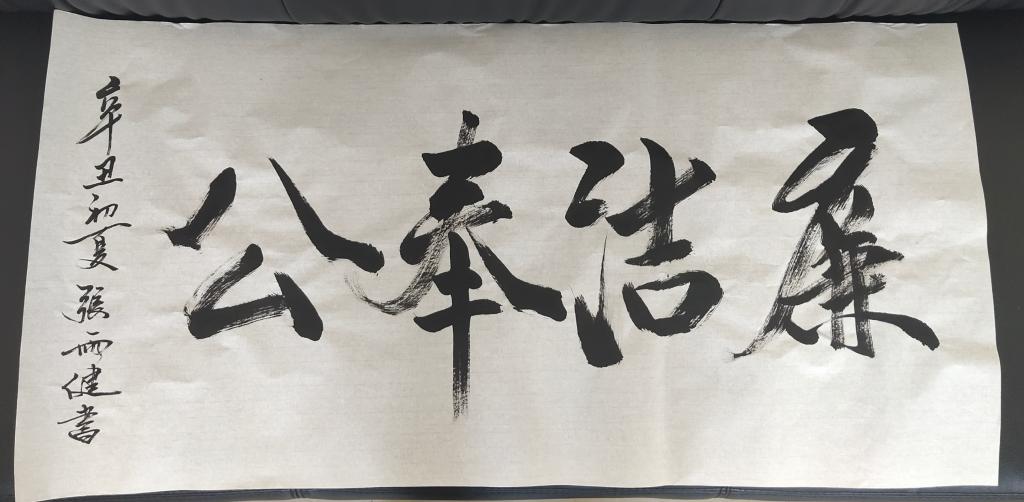 廉洁奉公
辛丑初夏 張雨健書